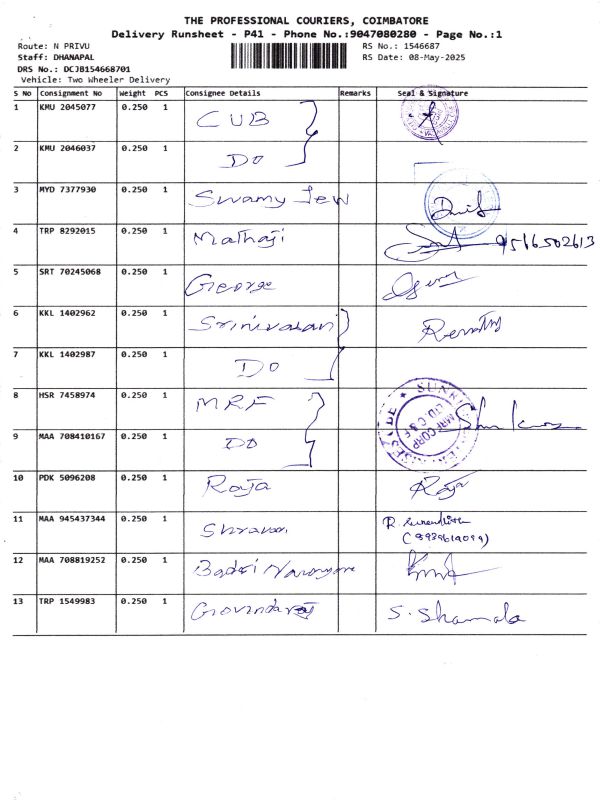 THE PROFESSIONAL COURIERS, COIMBATORE
Delivery Runsheet - P41 - Phone No.:9047080280 - Page No.:1
Route: N PRIVU RS No.: 1546687
Staff: DHANAPAL RS Date: 08-May-2025
DRS No.: DCJB154668701
Vehicle: Two Wheeler Delivery
S No Consignment No Weight PCS Consignee Details Remarks Seal & Signature
1 KMU 2045077 0.250 1 CUB
2 KMU 2046037 0.250 1 DO
3 MYD 7377930 0.250 1 Swamy Jew
4 TRP 8292015 0.250 1 Mathaji 9566502613
5 SRT 70245068 0.250 1 George
6 KKL 1402962 0.250 1 Srinivasan
7 KKL 1402987 0.250 1 DO
8 HSR 7458974 0.250 1 MRF
9 MAA 708410167 0.250 1 DO
MRF CORP
LTD. C & F
10 PDK 5096208 0.250 1 Raja Raja
11 MAA 945437344 0.250 1
12 MAA 708819252 0.250 1 Badri
13 TRP 1549983 0.250 1 Govindaraj S. Shamala